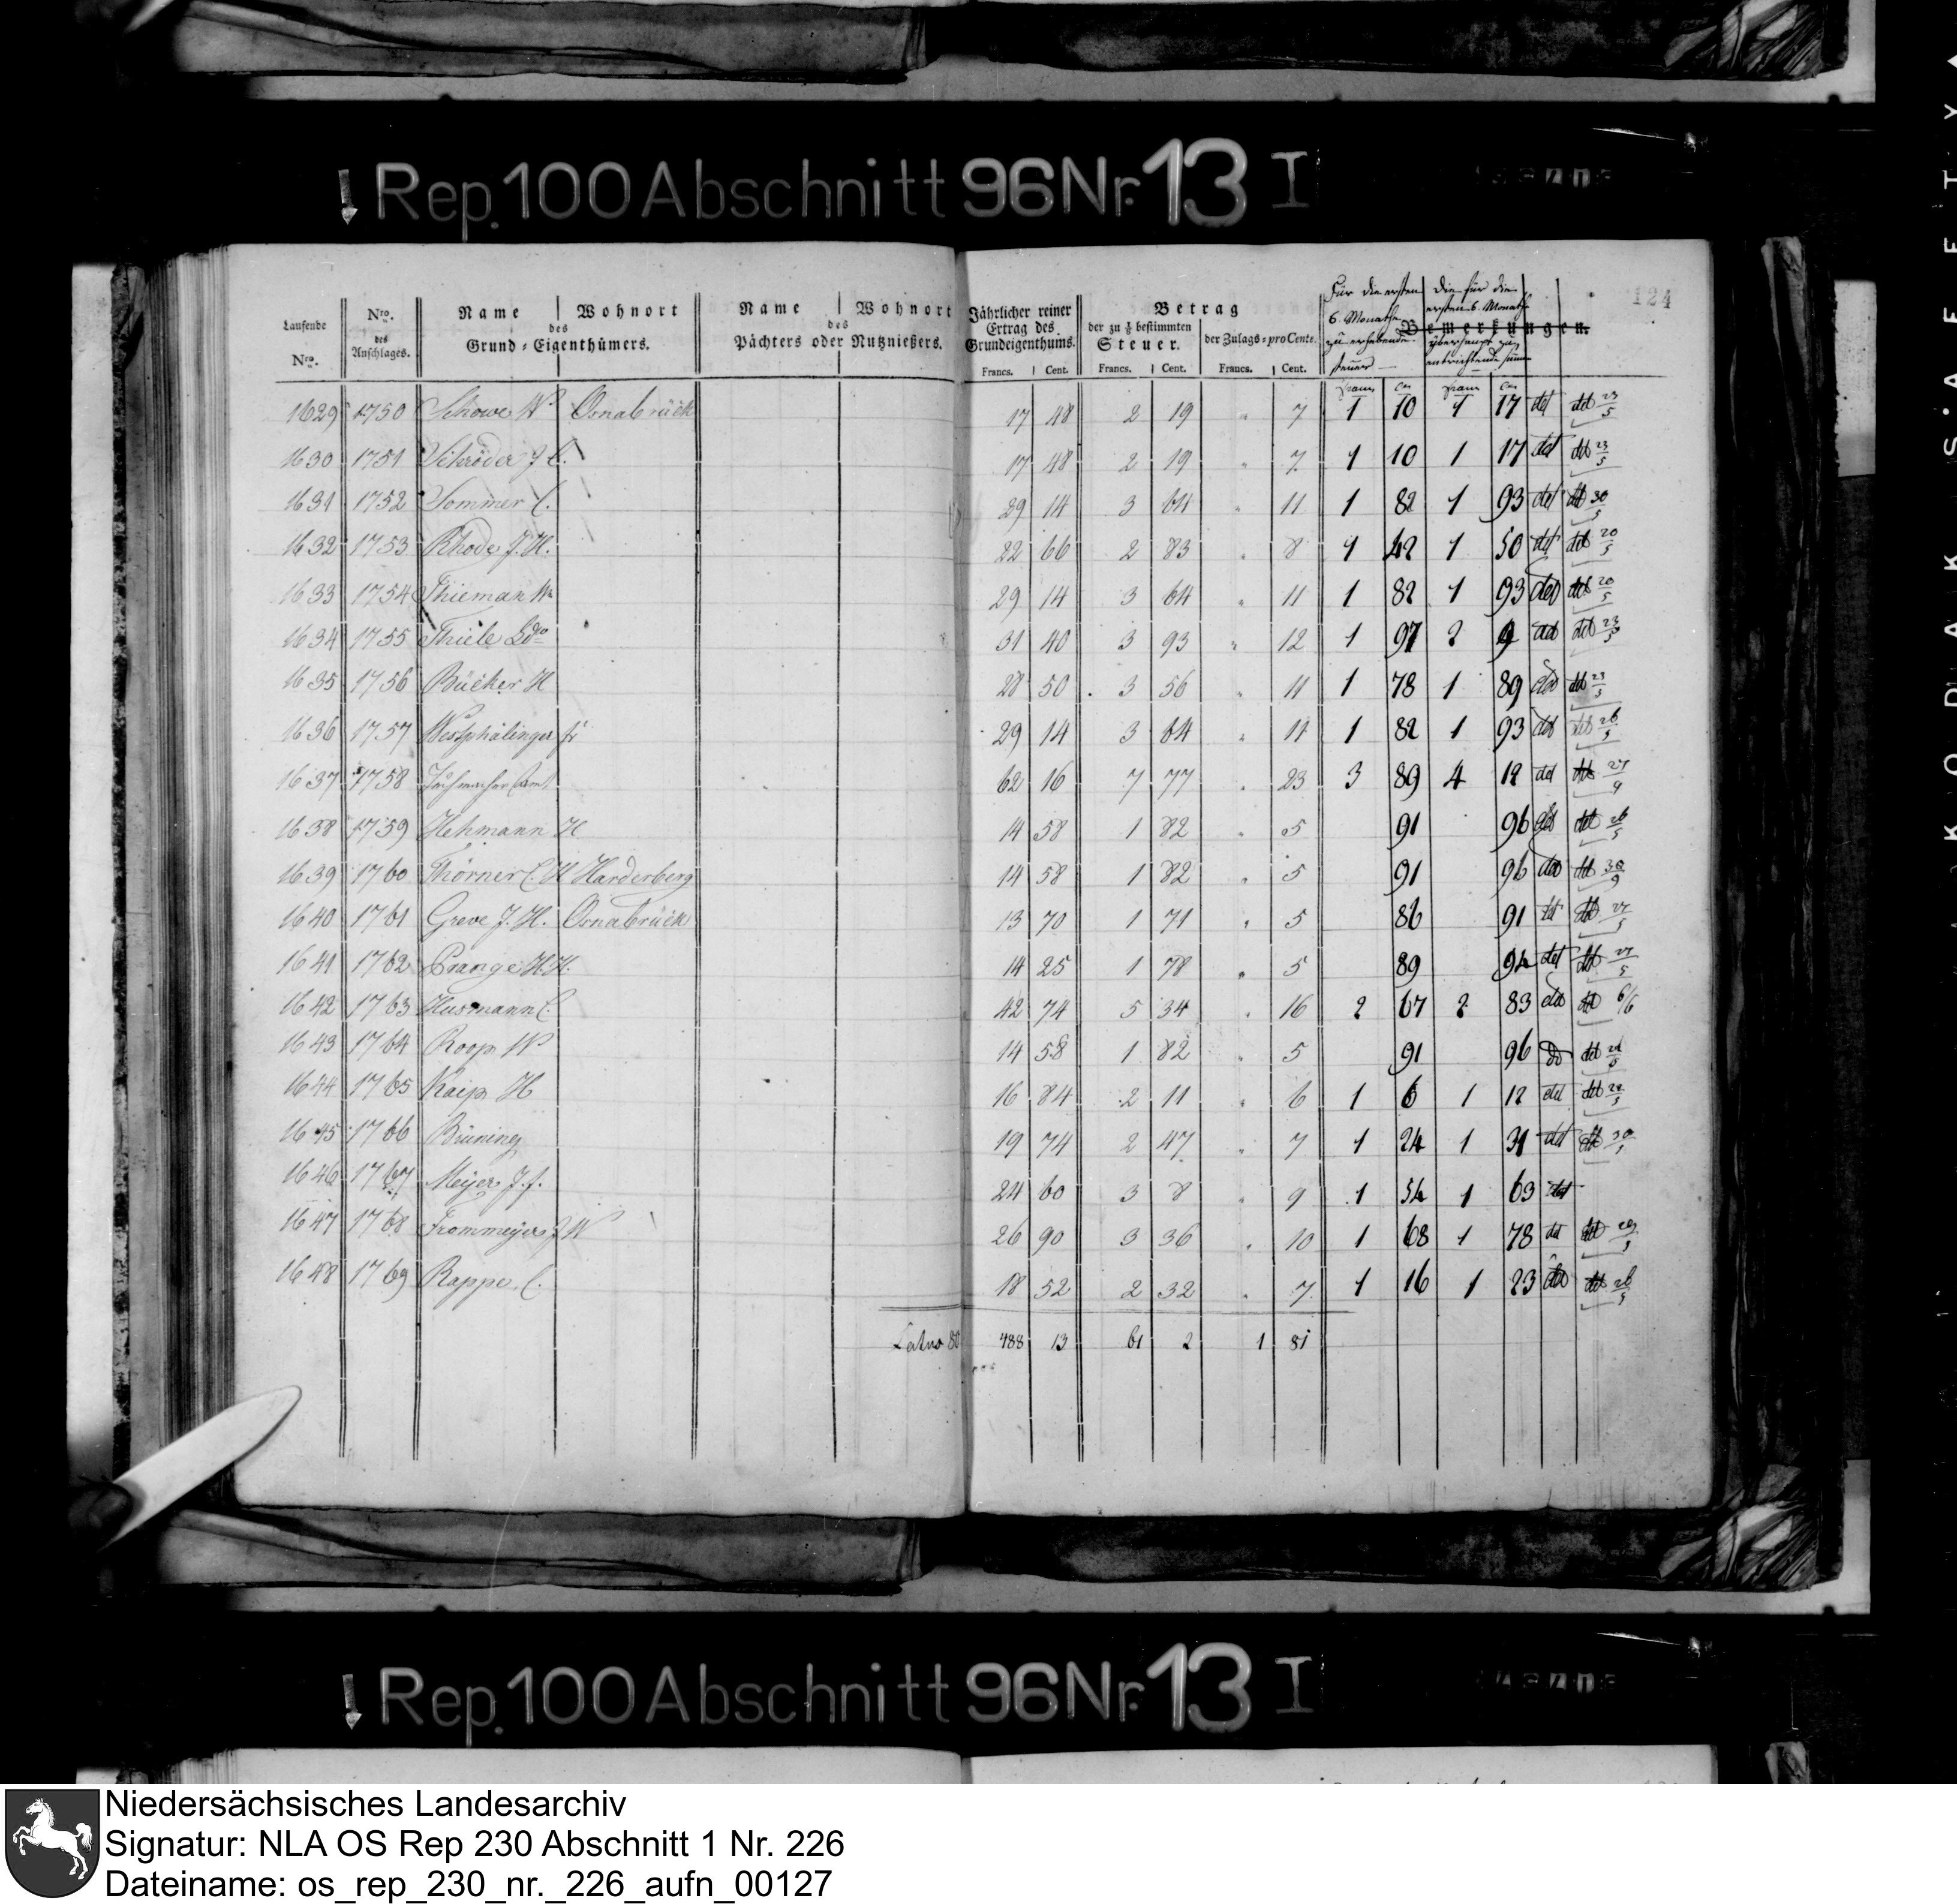 Rep. 100 Abschnitt 96 Nr. 13 I
124
Laufende Nro. | Nro. des Anschlages. | Name Wohnort des Grund-Eigenthümers. | Name Wohnort des Pächters oder Nutznießers. | Jährlicher reiner Ertrag des Grundeigenthums. | Betrag der zu ⅛ bestimmten Steuer. | der Zulags-pro Cente. | Bemerkungen.
Für die ersten 6. Monathe zu erhebende Steuer | Die für die ersten 6. Monath überhaupt zu entrichtende Summe
Francs. Cent. Francs. Cent. Francs. Cent. Franc Cen Franc Cen
1629 1750 Schowe W Osnabrück 17 48 2 19 " 7 1 10 1 17 det det 23/5
1630 1751 Schröder J C. 17 48 2 19 " 7 1 10 1 17 det det 23/5
1631 1752 Sommer C. 29 14 3 64 " 11 1 82 1 93 det det 30/5
1632 1753 Rhode J. H. 22 66 2 83 " 8 1 42 1 50 det det 20/5
1633 1754 Thieman Wm 29 14 3 64 " 11 1 82 1 93 det det 20/5
1634 1755 Thiele 31 40 3 93 " 12 1 97 2 9 det det 23/5
1635 1756 Bücker H 28 50 3 56 " 11 1 78 1 89 det det 23/5
1636 1757 Westphälinger jr 29 14 3 64 " 11 1 82 1 93 det det 26/5
1637 1758 Amt 62 16 7 77 " 23 3 89 4 12 det det
1638 1759 Hehmann H 14 58 1 82 " 5 91 96 det det 26/5
1639 1760 Thörner C. H Harderberg 14 58 1 82 " 5 91 96 det det 30/9
1640 1761 Greve J. H. Osnabrück 13 70 1 71 " 5 86 91 det det 27/5
1641 1762 Prange H. H. 14 25 1 78 " 5 89 94 det det 27/5
1642 1763 Husmann C. 42 74 5 34 " 16 2 67 2 83 det det 6/6
1643 1764 Roop W 14 58 1 82 " 5 91 96 do det
1644 1765 Kaip H 16 84 2 11 " 6 1 6 1 12 det det
1645 1766 Brüning 19 74 2 47 " 7 1 24 1 31 det det 30/5
1646 1767 Meyer J. f. 24 60 3 8 " 9 1 54 1 63 det
1647 1768 Frommeyer J W 26 90 3 36 " 10 1 68 1 78 det det 29/5
1648 1769 Rappe C. 18 52 2 32 " 7 1 16 1 23 det det 26/5
Latus 80 488 13 61 2 1 81
Rep. 100 Abschnitt 96 Nr. 13 I
KODAK SAFETY
Niedersächsisches Landesarchiv
Signatur: NLA OS Rep 230 Abschnitt 1 Nr. 226
Dateiname: os_rep_230_nr._226_aufn_00127